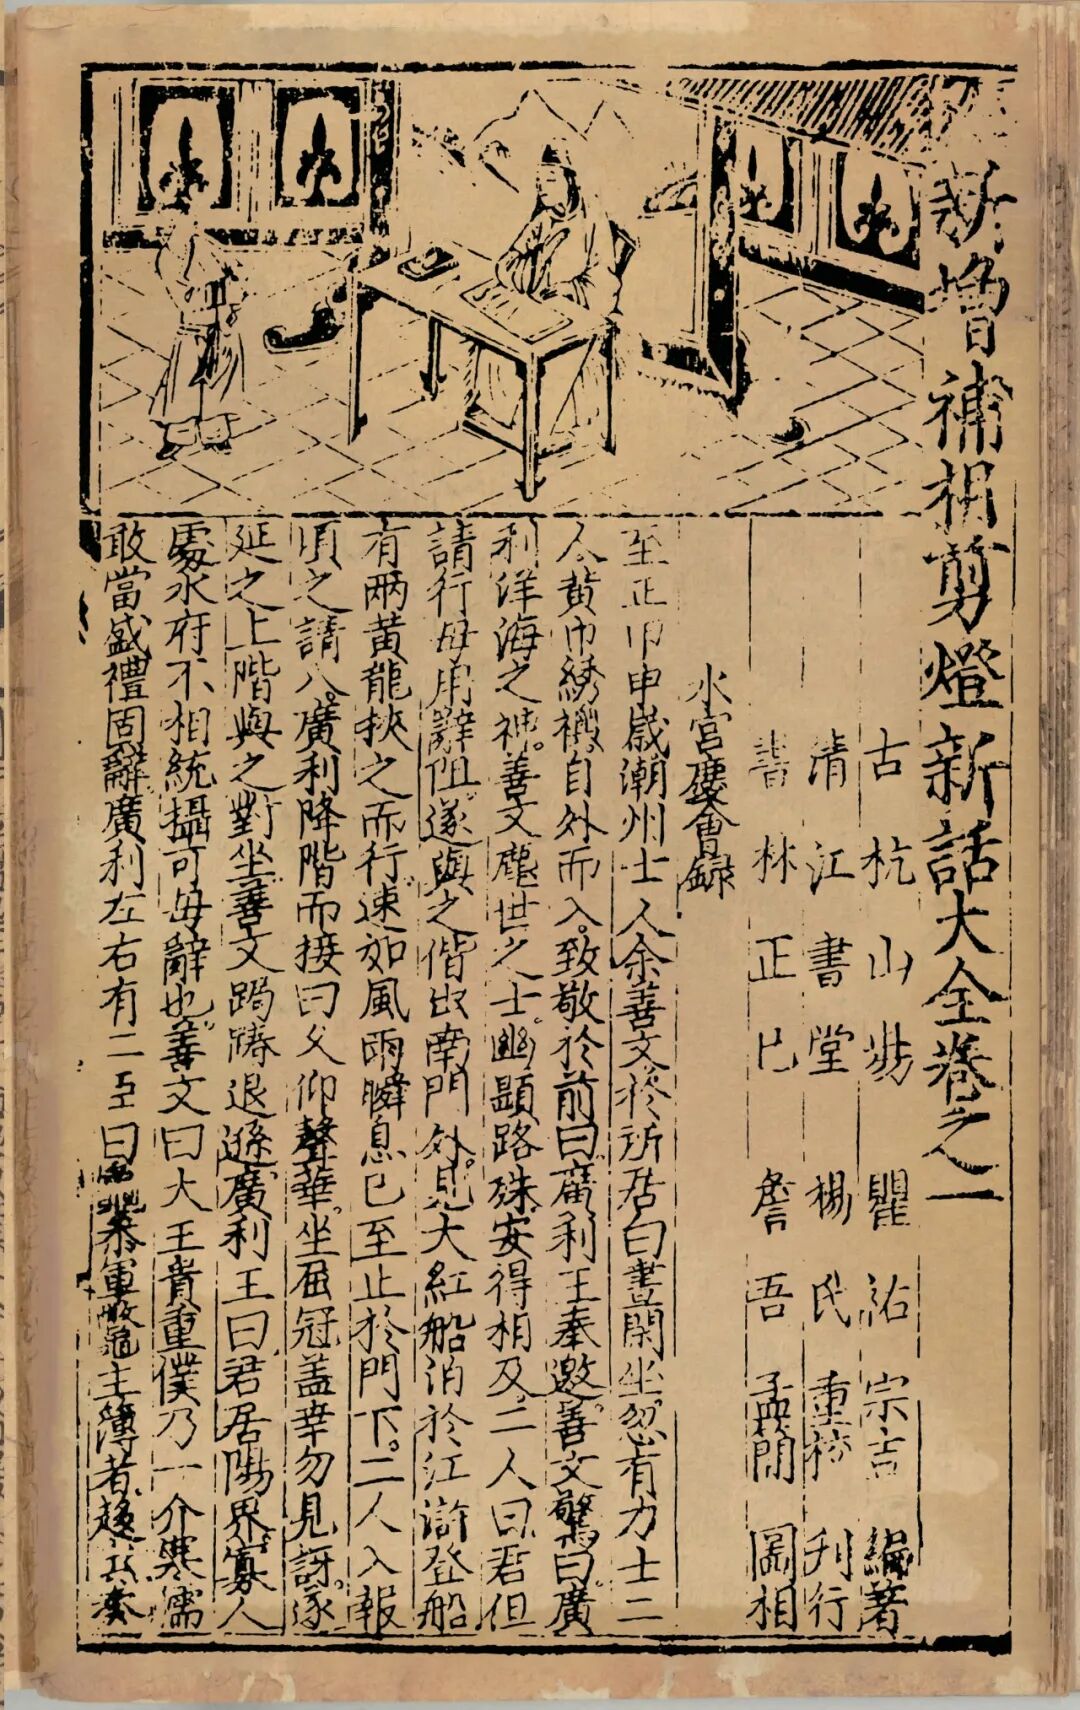 新增補相剪燈新話大全卷之一
古杭山陽瞿佑宗吉編著
清江書堂楊氏重校刊行
書林正巳詹吾孟簡圖相
水宮慶會録
至正甲申歲潮州士人余善文於所居白晝閑坐忽有力士二
人黃巾綉襖自外而入致敬於前曰廣利王奉邀善文驚曰廣
利洋海之神善文塵世之士幽顯路殊安得相及二人曰君但
請行毋用辭阻遂與之偕出南門外見大紅船泊於江滸登船
有兩黃龍挾之而行速如風雨瞬息已至止於門下二人入報
頃之請入廣利降階而接曰久仰聲華坐屈冠盖幸勿見訝遂
延之上階與之對坐善文跼蹐退遜廣利王曰君居陽界寡人
處水府不相統攝可毋辭也善文曰大王貴重僕乃一介寒儒
敢當盛禮固辭廣利左右有二臣曰黿叅軍鱉主簿者趍出奏